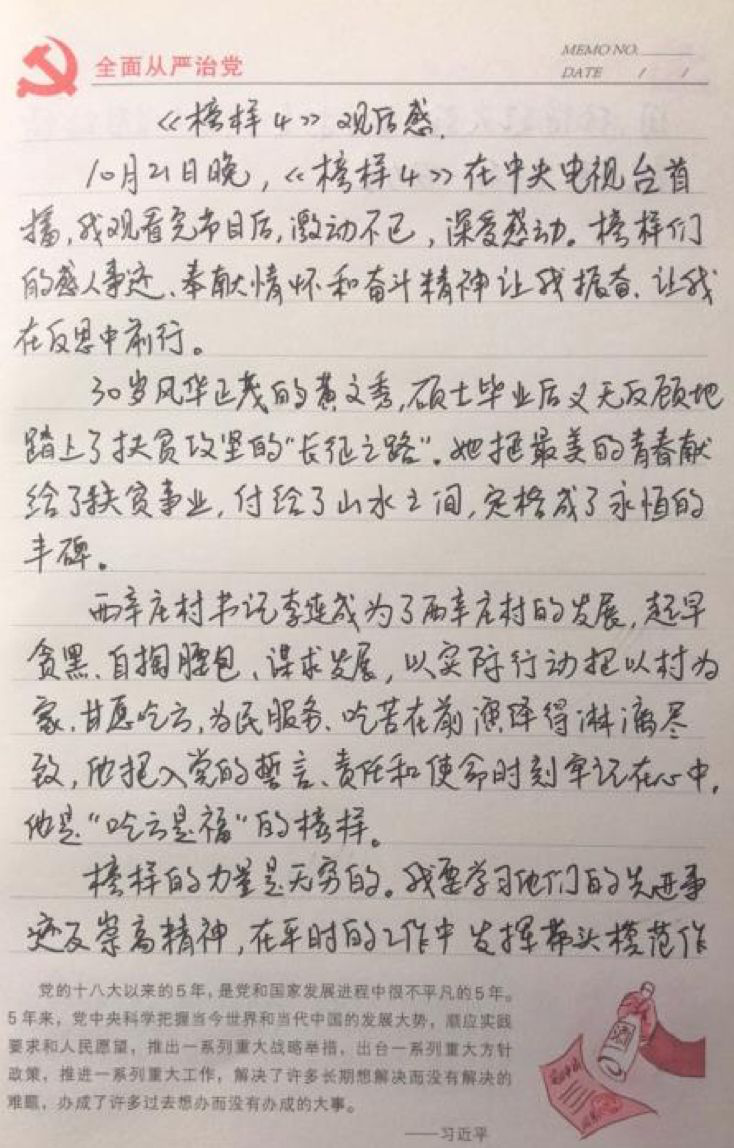 全面从严治党
MEMO NO.
DATE / /
《榜样4》观后感.
10月21日晚，《榜样4》在中央电视台首
播，我观看完节目后，激动不已，深受感动。榜样们
的感人事迹、奉献情怀和奋斗精神让我振奋、让我
在反思中前行。
30岁风华正茂的黄文秀，硕士毕业后义无反顾地
踏上了扶贫攻坚的“长征之路”。她把最美的青春献
给了扶贫事业，付给了山水之间，定格成了永恒的
丰碑。
西辛庄村书记李连成为了西辛庄村的发展，起早
贪黑、自掏腰包、谋求发展，以实际行动把以村为
家、甘愿吃亏，为民服务、吃苦在前演绎得淋漓尽
致，他把入党的誓言、责任和使命时刻牢记在心中，
他是“吃亏是福”的榜样。
榜样的力量是无穷的。我要学习他们的先进事
迹及崇高精神，在平时的工作中发挥带头模范作
党的十八大以来的5年，是党和国家发展进程中很不平凡的5年。
5年来，党中央科学把握当今世界和当代中国的发展大势，顺应实践
要求和人民愿望，推出一系列重大战略举措，出台一系列重大方针
政策，推进一系列重大工作，解决了许多长期想解决而没有解决的
难题，办成了许多过去想办而没有办成的大事。
——习近平